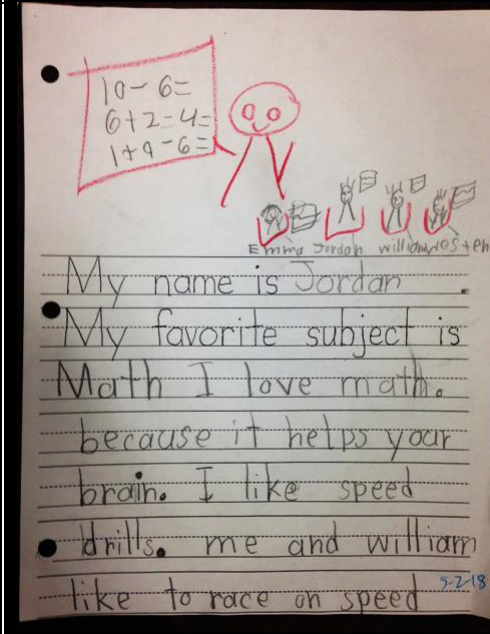 10-6=
6+2=4=
1+9-6=
Emma Jordan william
My name is Jordan .
My favorite subject is
Math I love math.
because it helps your
brain. I like speed
drills. me and william
like to race on speed
5-2-18